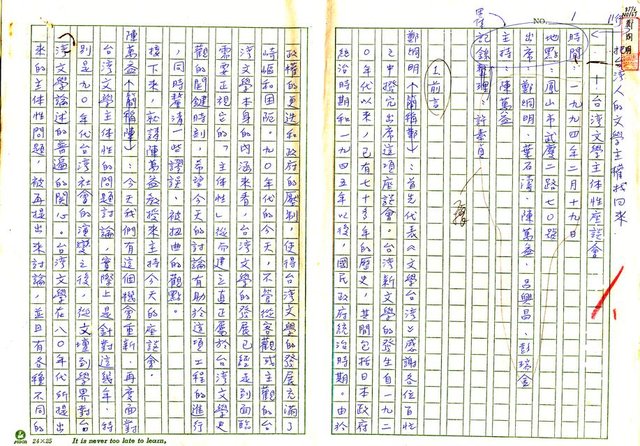 NO. 1
把台灣人的文學主權找回來
——台灣文學主體性座談會
時間:一九九四年二月十九日
地點:鳳山市武慶路七〇號
出席:鄭炯明、葉石濤、陳萬益、呂興昌、彭瑞金
主持:陳萬益
記錄整理:許素貞
1.前言
鄭炯明(簡稱鄭):首先代表《文學台灣》感謝各位百忙
之中撥冗出席這項座談會。台灣新文學的發生自一九二
〇年代以來,已有七十多年的歷史,其間包括日本政府
統治時期和一九四五年以後,國民政府統治時期。由於
政權的更迭和政府的壓制,使得台灣文學的發展充滿了
崎嶇和困阨。九〇年代的今天,不管從客觀或主觀的台
灣文學本身的內涵來看,台灣文學的發展已經走到面臨
需要正視台的「主體性」從命建立真正屬於台灣文學史
觀的關鍵時刻,希望今天的討論有助於這項工程的進行
,同時釐清一些謬誤、被扭曲的觀點。
接下來,就請陳萬益教授來主持今天的座談會。
陳萬益(簡稱陳):今天我們有這個機會重新、再度面對
台灣文學論述的普遍的關心。台灣文學在八〇年代所提出
別是九〇年代台灣社會的演變之後,從文壇到學界對台
來的主體性問題,被再提出來討論,並且有各種不同的
24×25
It is never too late to learn.